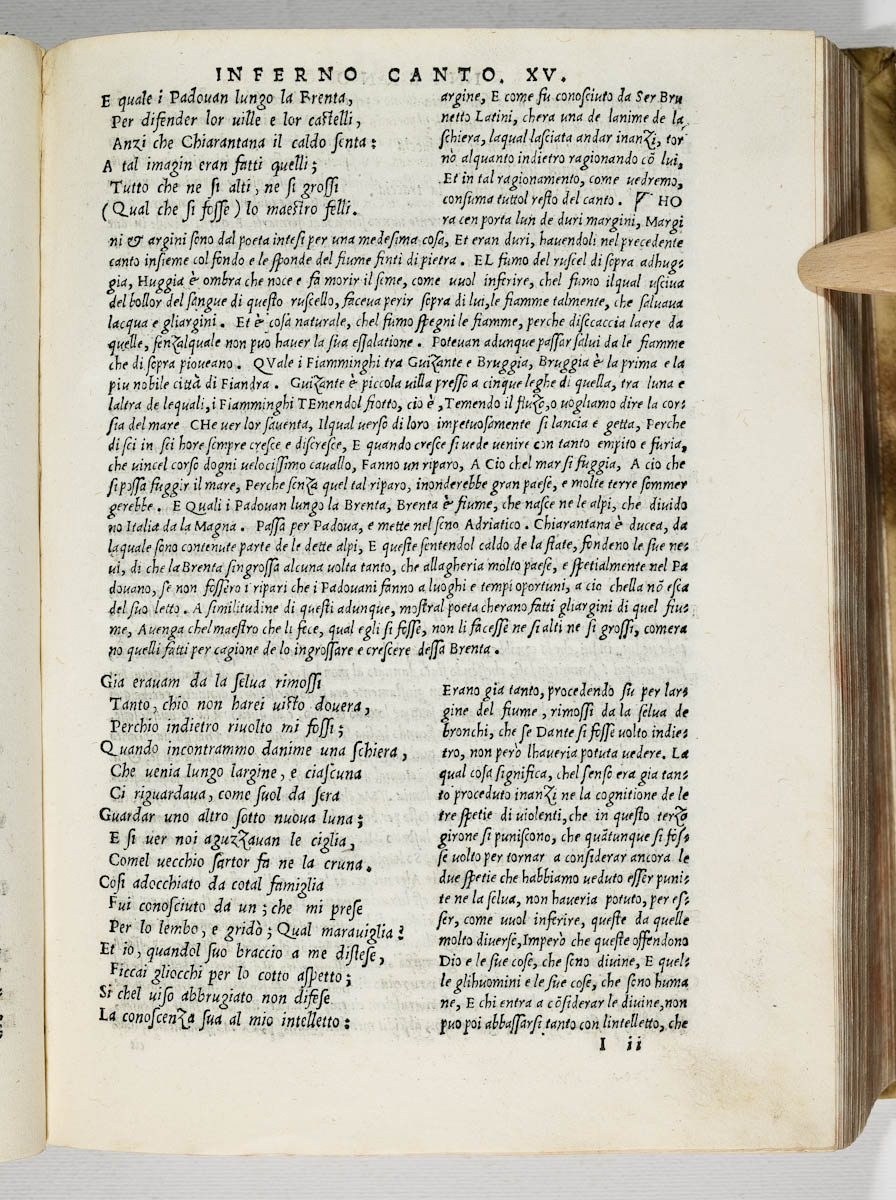 INFERNO CANTO. XV.
E quale i Padouan lungo la Brenta,
Per difender lor uille e lor castelli,
Anzi che Chiarantana il caldo senta:
A tal imagin eran fatti quelli;
Tutto che ne si alti, ne si grossi
(Qual che si fosse) lo maestro felli.
argine, E come fu conosciuto da Ser Bru
netto Latini, chera una de lanime de la
schiera, laqual lasciata andar inanzi, tor
nò alquanto indietro ragionando cõ lui,
Et in tal ragionamento, come uedremo,
consuma tuttol resto del canto. HO
ra cen porta lun de duri margini, Margi
ni & argini sono dal poeta intesi per una medesima cosa, Et eran duri, hauendoli nel precedente
canto insieme col fondo e le sponde del fiume finti di pietra. EL fumo del ruscel di sopra adhug-
gia, Huggia è ombra che noce e fa morir il sime, come uuol inferire, chel fumo ilqual usciua
del bollor del sangue di questo ruscello, faceua perir sopra di lui, le fiamme talmente, che saluaua
lacqua e gliargini. Et è cosa naturale, chel fumo spegni le fiamme, perche discaccia laere da
quelle, senzalquale non puo hauer la sua essalatione. Poteuan adunque passar salui da le fiamme
che di sopra pioueano. QVale i Fiamminghi tra Guizante e Bruggia, Bruggia è la prima e la
piu nobile città di Fiandra. Guizante è piccola uilla presso a cinque leghe di quella, tra luna e
laltra de lequali, i Fiamminghi TEmendol fiotto, cio è, Temendo il fluzo, o uogliamo dire la cor-
sia del mare CHe uer lor sauenta, Ilqual uerso di loro impetuosamente si lancia e getta, Perche
di sei in sei hore sempre cresce e discresce, E quando cresce si uede uenire con tanto empito e furia,
che uincel corso dogni uelocissimo cauallo, Fanno un riparo, A Cio chel mar si fuggia, A cio che
si possa fuggir il mare, Perche senza quel tal riparo, inonderebbe gran paese, e molte terre sommer
gerebbe. E Quali i Padouan lungo la Brenta, Brenta è fiume, che nasce ne le alpi, che diuido
no Italia da la Magna. Passa per Padoua, e mette nel seno Adriatico. Chiarantana è ducea, da
laquale sono contenute parte de le dette alpi, E queste sentendol caldo de la state, fondeno le sue ne-
ui, di che la Brenta singrossa alcuna uolta tanto, che allagheria molto paese, e spetialmente nel Pa
douano, se non fossero i ripari che i Padouani fanno a luoghi e tempi oportuni, a cio chella nõ esca
del suo letto. A similitudine di questi adunque, mostral poeta cherano fatti gliargini di quel fiu-
me, Auenga chel maestro che li fece, qual egli si fosse, non li facesse ne si alti ne si grossi, comera
no quelli fatti per cagione de lo ingrossare e crescere dessa Brenta.
Gia erauam da la selua rimossi
Tanto, chio non harei uisto douera,
Perchio indietro riuolto mi fossi;
Quando incontrammo danime una schiera,
Che uenia lungo largine, e ciascuna
Ci riguardaua, come suol da sera
Guardar uno altro sotto nuoua luna;
E si uer noi aguzzauan le ciglia,
Comel uecchio sartor fa ne la cruna.
Cosi adocchiato da cotal famiglia
Fui conosciuto da un; che mi prese
Per lo lembo, e gridò; Qual marauiglia?
Et io, quandol suo braccio a me distese,
Ficcai gliocchi per lo cotto aspetto;
Si chel uiso abbrugiato non difese
La conoscenza sua al mio intelletto:
Erano gia tanto, procedendo su per lar-
gine del fiume, rimossi da la selua de
bronchi, che se Dante si fosse uolto indie-
tro, non però lhaueria potuta uedere. La
qual cosa significa, chel senso era gia tan-
to proceduto inanzi ne la cognitione de le
tre spetie di uiolenti, che in questo terzo
girone si puniscono, che quãtunque si fos-
se uolto per tornar a considerar ancora le
due spetie che habbiamo ueduto esser puni-
te ne la selua, non haueria potuto, per es-
ser, come uuol inferire, queste da quelle
molto diuerse, Imperò che queste offendono
Dio e le sue cose, che sono diuine, E quel-
le glihuomini e le sue cose, che sono huma
ne, E chi entra a cõsiderar le diuine, non
puo poi abbassarsi tanto con lintelletto, che
I ii